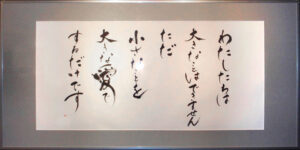 わたしたちは
大きなことはできません
ただ
小さなことを
大きな愛で
するだけです